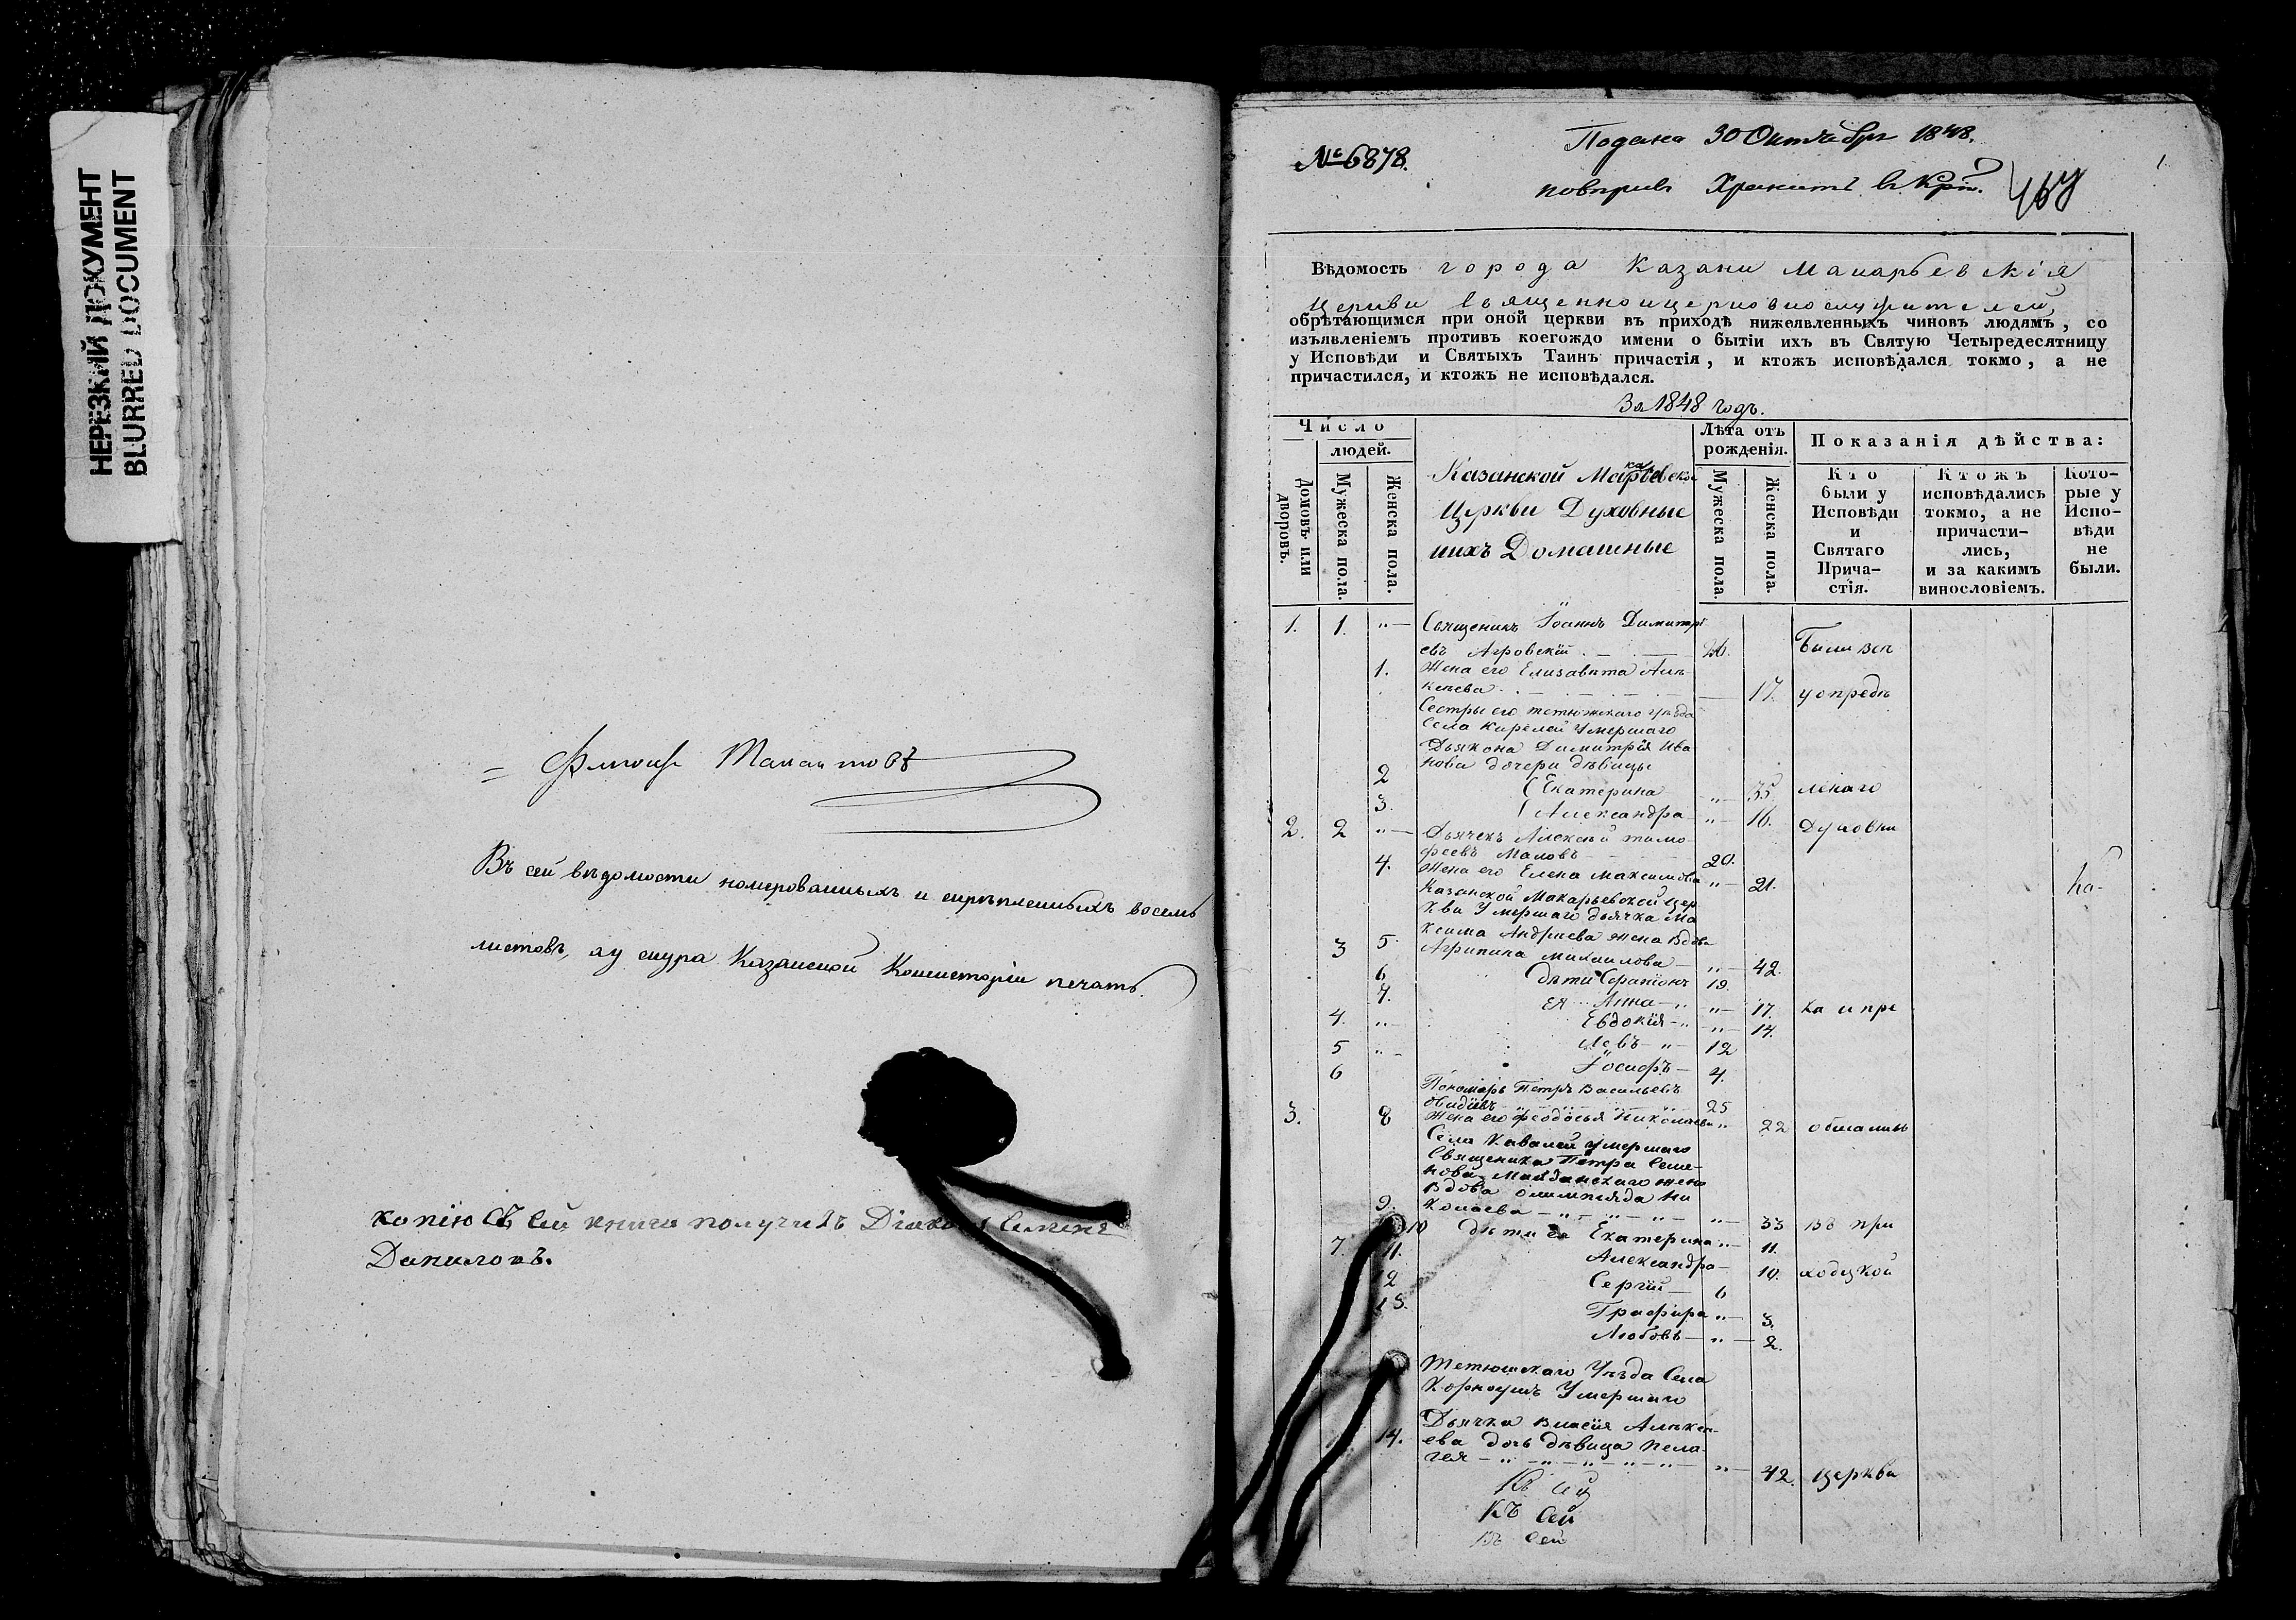 НЕРЕЗКИЙ ДОКУМЕНТ
BLURRED DOCUMENT
Въ сей вѣдомости номерованныхъ и скрѣпленныхъ восемь
листовъ, а у снура Казанской Консисторіи печать.
копію съ сей книги получилъ Діаконъ Семенъ
Даниловъ.
№ 6878.
Подана 30 Октября 1848.
Вѣдомость города Казани Макарьевскія
Церкви Священноицерковнослужителей,
обрѣтающимся при оной церкви въ приходѣ нижеявленныхъ чиновъ людямъ, со
изъявленіемъ противъ коегождо имени о бытіи ихъ въ Святую Четыредесятницу
у Исповѣди и Святыхъ Таинъ причастія, и ктожъ исповѣдался токмо, а не
причастился, и ктожъ не исповѣдался.
За 1848 годъ.
Число
людей.
Домовъ или дворовъ.
Мужеска пола.
Женска пола.
Казанской Макарьевск
Церкви Духовные
ихъ Домашные
Лѣта отъ
рожденія.
Мужеска пола.
Женска пола.
Показанія дѣйства:
Кто
были у
Исповѣди
и
Святаго
Прича-
стія.
Ктожъ
исповѣдались
токмо, а не
причасти-
лись,
и за какимъ
винословіемъ.
Кото-
рые у
Испо-
вѣди
не
были.
1. 1. "— Священикъ Іоаннъ Димитрі
евъ Агровскій 26. Были всѣ
1. Жена его Елизавѣта Але
ксѣева 17. у опредѣ
Сестры его тетюжскаго уѣзда
Села Кирелей Умершаго
Дьякона Димитрія Ива
нова дочери дѣвицы
2 Екатерина "— 35 ленаго
3. Александра "— 16.
2. 2 "— Дьячекъ Алексѣй тимо Духовни
феевъ Маловъ 20.
4. Жена его Елена Максимова "— 21.
Казанской Макарьевской цер
кви Умершаго дьячка Ма
ксима Андреева жена вдова
3 5. Агрипина михаилова "— 42.
6 дѣти Серапіонъ 19.
7. ея Анна "— 17. ка и пре
4. "— Евдокія "— 14.
5 "— Левъ 12
6 Іосифъ 4.
Пономарь Петръ Васильевъ
Овидіевъ 25
3. 8 Жена его феодосья Николаева " 22
Села Кавалей умершаго
Священика Петра Семе-
нова Майданскаго жена
вдова олимпіяда Ни
9. колаева "— 33 въ при
10 дѣти ея Екатерина "— 11.
7. 11. Александра 10. ходской
12 Сергій 6
13. Графира "— 3.
Любовь "— 2.
Тетюшскаго Уѣзда Села
Корноухъ Умершаго
Дьячка власія Алексѣ-
14. ева дочь дѣвица пела-
гея "— 42. Церкви
Къ сей
Къ сей